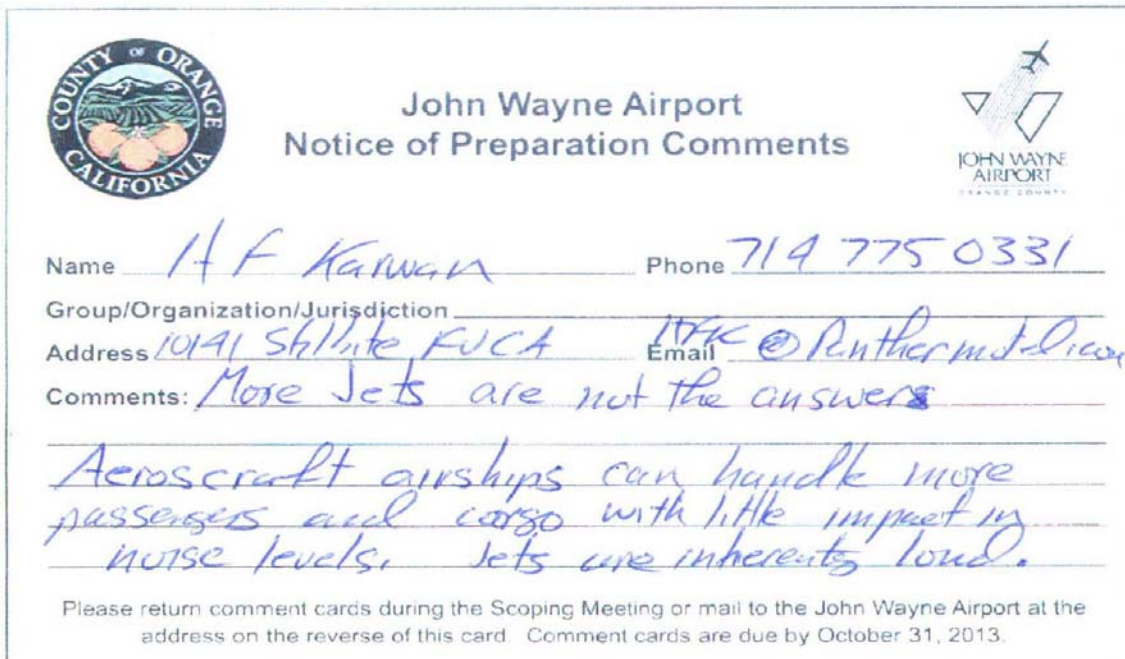 COUNTY OF ORANGE
CALIFORNIA
John Wayne Airport
Notice of Preparation Comments
JOHN WAYNE
AIRPORT
ORANGE COUNTY
Name H F Karwan Phone 714 775 0331
Group/Organization/Jurisdiction
Address 10141 FVCA Email HFK@
Comments: More Jets are not the answer
Aeroscraft airships can handle more
passengers and cargo with little impact in
noise levels. Jets are inherently loud.
Please return comment cards during the Scoping Meeting or mail to the John Wayne Airport at the
address on the reverse of this card. Comment cards are due by October 31, 2013.